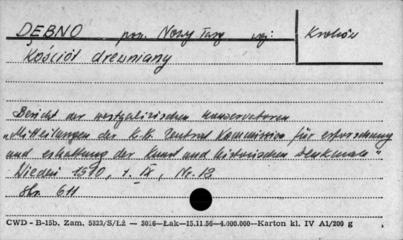 DĘBNO pow. Nowy Targ woj: Kraków
Kościół drewniany
Bericht der westgalizischen Konservatoren
"Mitteilungen der k.k. Zentral Kommission für erforschung
und erhaltung der Kunst und historischen Denkmale"
Wiedeń 1910, t. IX, Nr. 13
Str. 611
CWD - B-15b. Zam. 5323/S/Lż — 3016—Łak—15.11.56—4.000.000—Karton kl. IV A1/200 g